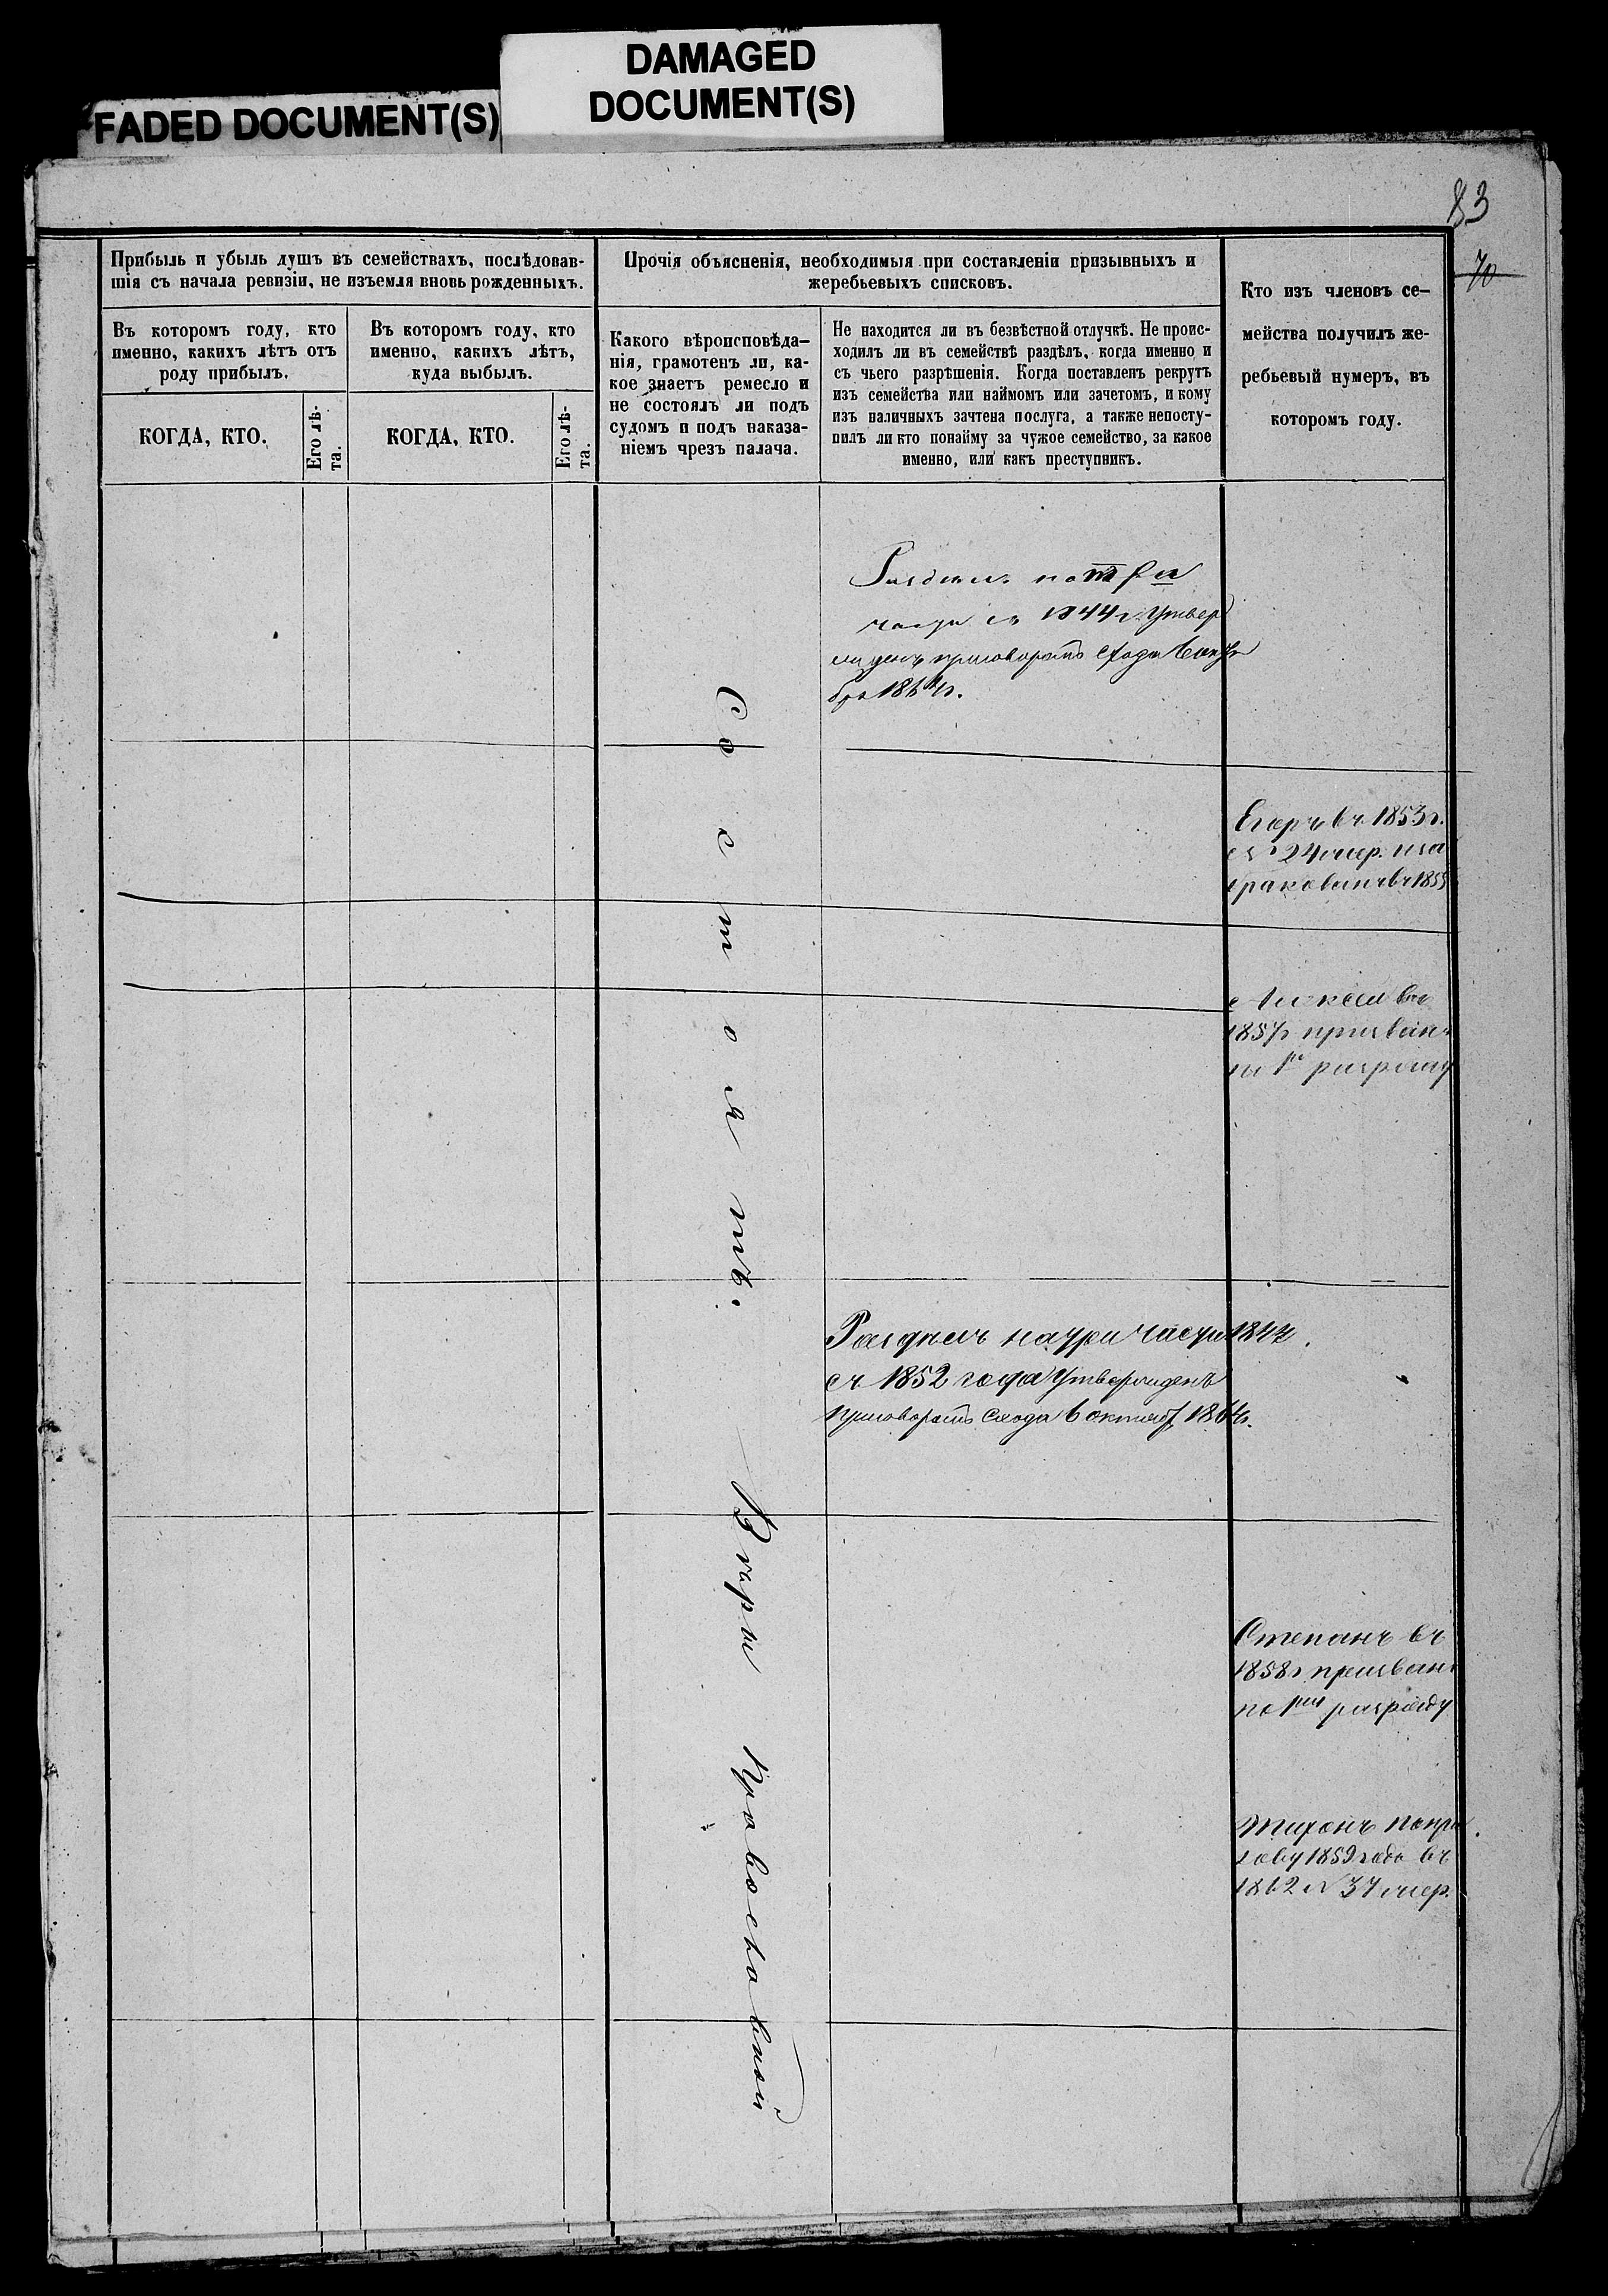 DAMAGED
DOCUMENT(S)
FADED DOCUMENT(S)
83
70
Прибыль и убыль душъ въ семействахъ, послѣдовав-
шія съ начала ревизіи, не изъемля вновь рожденныхъ.
Прочія объясненія, необходимыя при составленіи призывныхъ и
жеребьевыхъ списковъ.
Кто изъ членовъ се-
мейства получилъ же-
ребьевый нумеръ, въ
которомъ году.
Въ которомъ году, кто
именно, какихъ лѣтъ отъ
роду прибылъ.
Въ которомъ году, кто
именно, какихъ лѣтъ,
куда выбылъ.
Какого вѣроисповѣда-
нія, грамотенъ ли, ка-
кое знаетъ ремесло и
не состоялъ ли подъ
судомъ и подъ наказа-
ніемъ чрезъ палача.
Не находится ли въ безвѣстной отлучкѣ. Не проис-
ходилъ ли въ семействѣ раздѣлъ, когда именно и
съ чьего разрѣшенія. Когда поставленъ рекрутъ
изъ семейства или наймомъ или зачетомъ, и кому
изъ наличныхъ зачтена послуга, а также непосту-
пилъ ли кто понайму за чужое семейство, за какое
именно, или какъ преступникъ.
КОГДА, КТО.
Его лѣ-
та.
КОГДА, КТО.
Его лѣ-
та.
на три
части съ 1844 г. Утвер
жденъ приговоромъ Схода 6 октя
бря 1864 г.
Состоятъ.
Вѣры Православной
Егоръ въ 1853 г.
24 нумер.
бракованъ въ 1855
Алексѣй въ
1857 г призванъ
по 1му разряду
Раздѣлъ на три части 1844
съ 1852 года Утвержденъ
приговоромъ Схода 6 октяб 1864 г.
Степанъ въ
1858 г призванъ
по 1му разряду
Тихонъ
1859 года въ
1862 N 37 нумер.